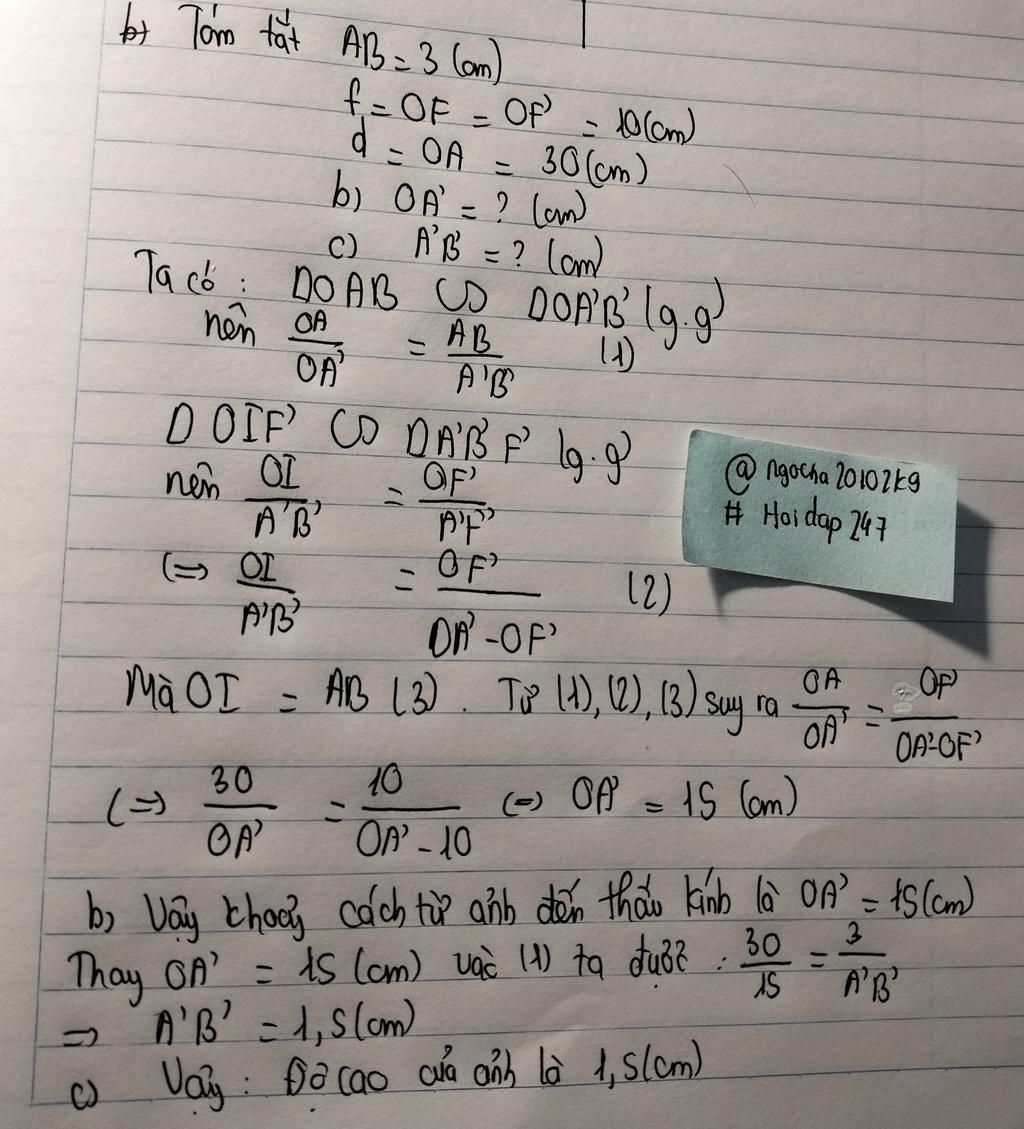 b) Tóm tắt AB = 3 (cm)
f = OF = OF' = 10(cm)
d = OA = 30(cm)
b) OA' = ? (cm)
c) A'B' = ? (cm)
Ta có : ΔOAB ∽ ΔOA'B' (g.g)
nên OA/OA' = AB/A'B' (1)
ΔOIF' ∽ ΔA'B'F' (g.g)
nên OI/A'B' = OF'/A'F'
(=> OI/A'B' = OF'/OA'-OF' (2)
Mà OI = AB (3). Từ (1), (2), (3) suy ra OA/OA' = OF'/OA'-OF'
(=> 30/OA' = 10/OA'-10 (=> OA' = 15 (cm)
b) Vậy khoảng cách từ ảnh đến thấu kính là OA' = 15(cm)
Thay OA' = 15 (cm) vào (1) ta được : 30/15 = 3/A'B'
=> A'B' = 1,5(cm)
c) Vậy : Độ cao của ảnh là 1,5(cm)
@ ngocha20102k9
# Hoidap247